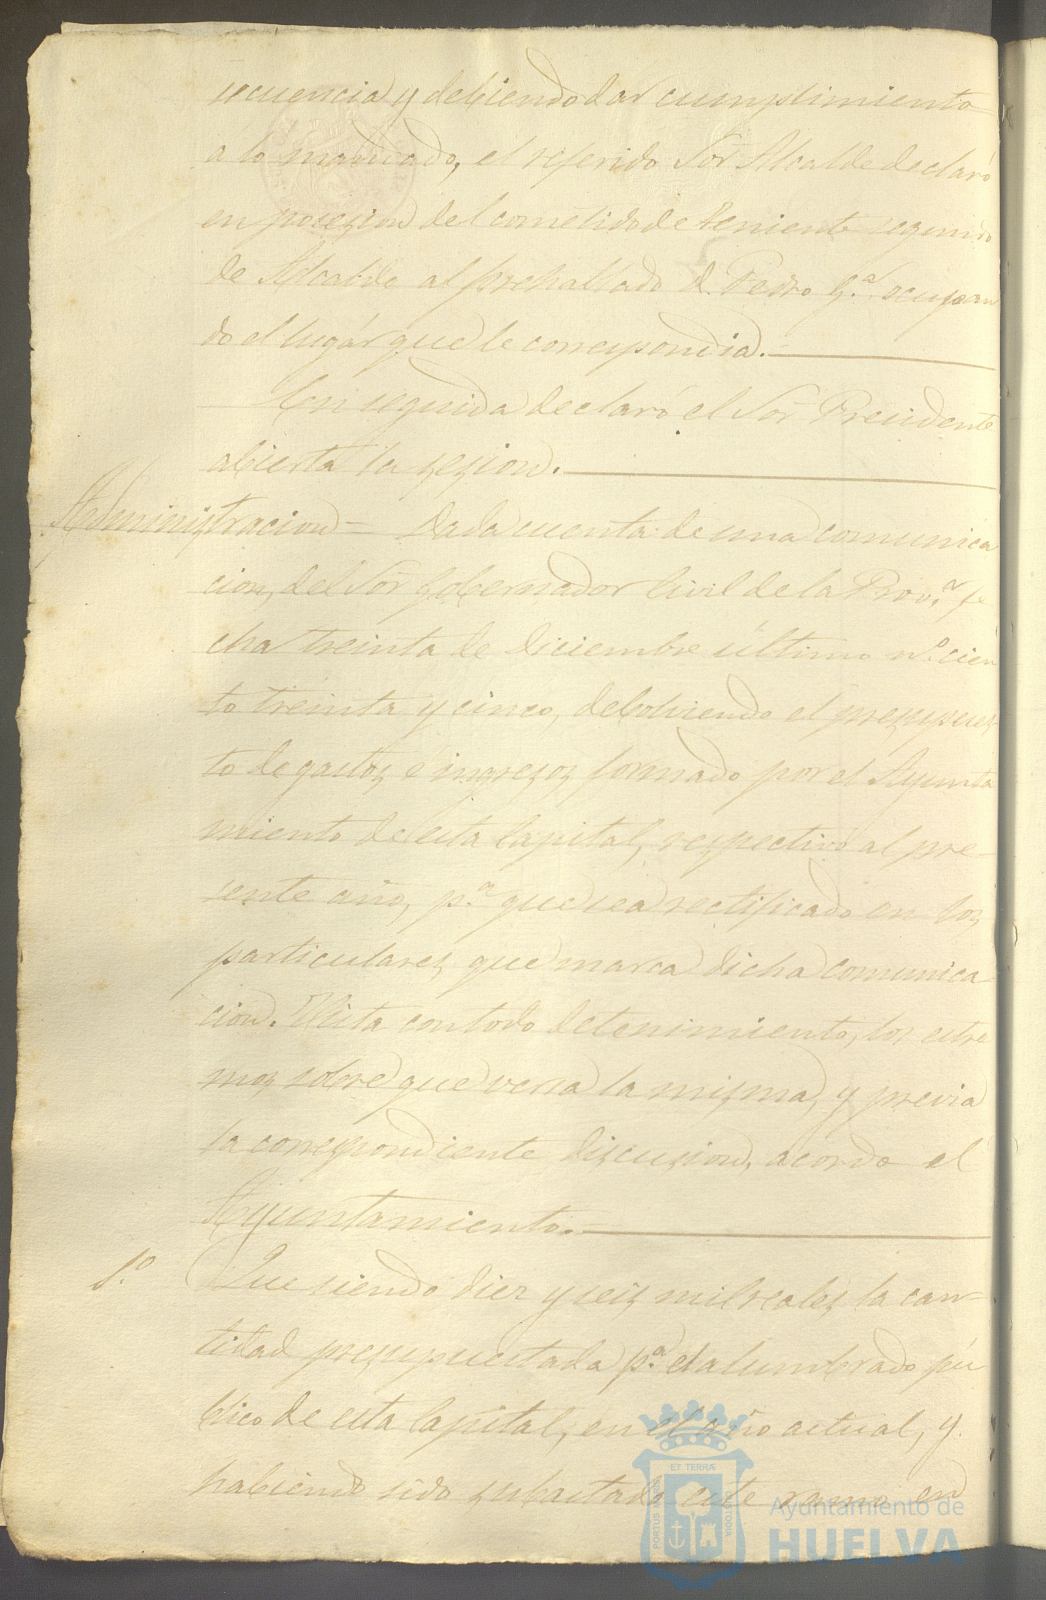 secuencia y debiendo dar cumplimiento
a lo mandado, el referido Sor Alcalde declaró
en posezion del cometido de teniente segundo
de Alcalde al prehallado D. Pedro G.ª ocupan
do el lugár que le correspondia.
En seguida declaró el Sor Presidente
abierta la sesion.
Administracion = Dada cuenta de una comunica
cion, del Sor Gobernador Civil de la Prov.ª fe
cha treinta de Diciembre último n.º cien
to treinta y cinco, debolviendo el presupues-
to de gastos é ingresos formado por el Ayunta
miento de esta Capital, respectivo al pre-
sente año, p.ª que sea rectificado en los
particulares que marca dicha comunica
cion. Vista con todo detenimiento, los estre
mos sobre que versa la misma, y previa
la correspondiente discusion, acordo el
Ayuntamiento.
1.º Que siendo diez y seis mil reales la can-
tidad presupuestada p.ª el alumbrado pú
blico de esta Capital, en el año actual, y
habiendo sido subastado este ramo en
PORTUS MARIS ET TERRÆ CUSTODIA
Ayuntamiento de
HUELVA